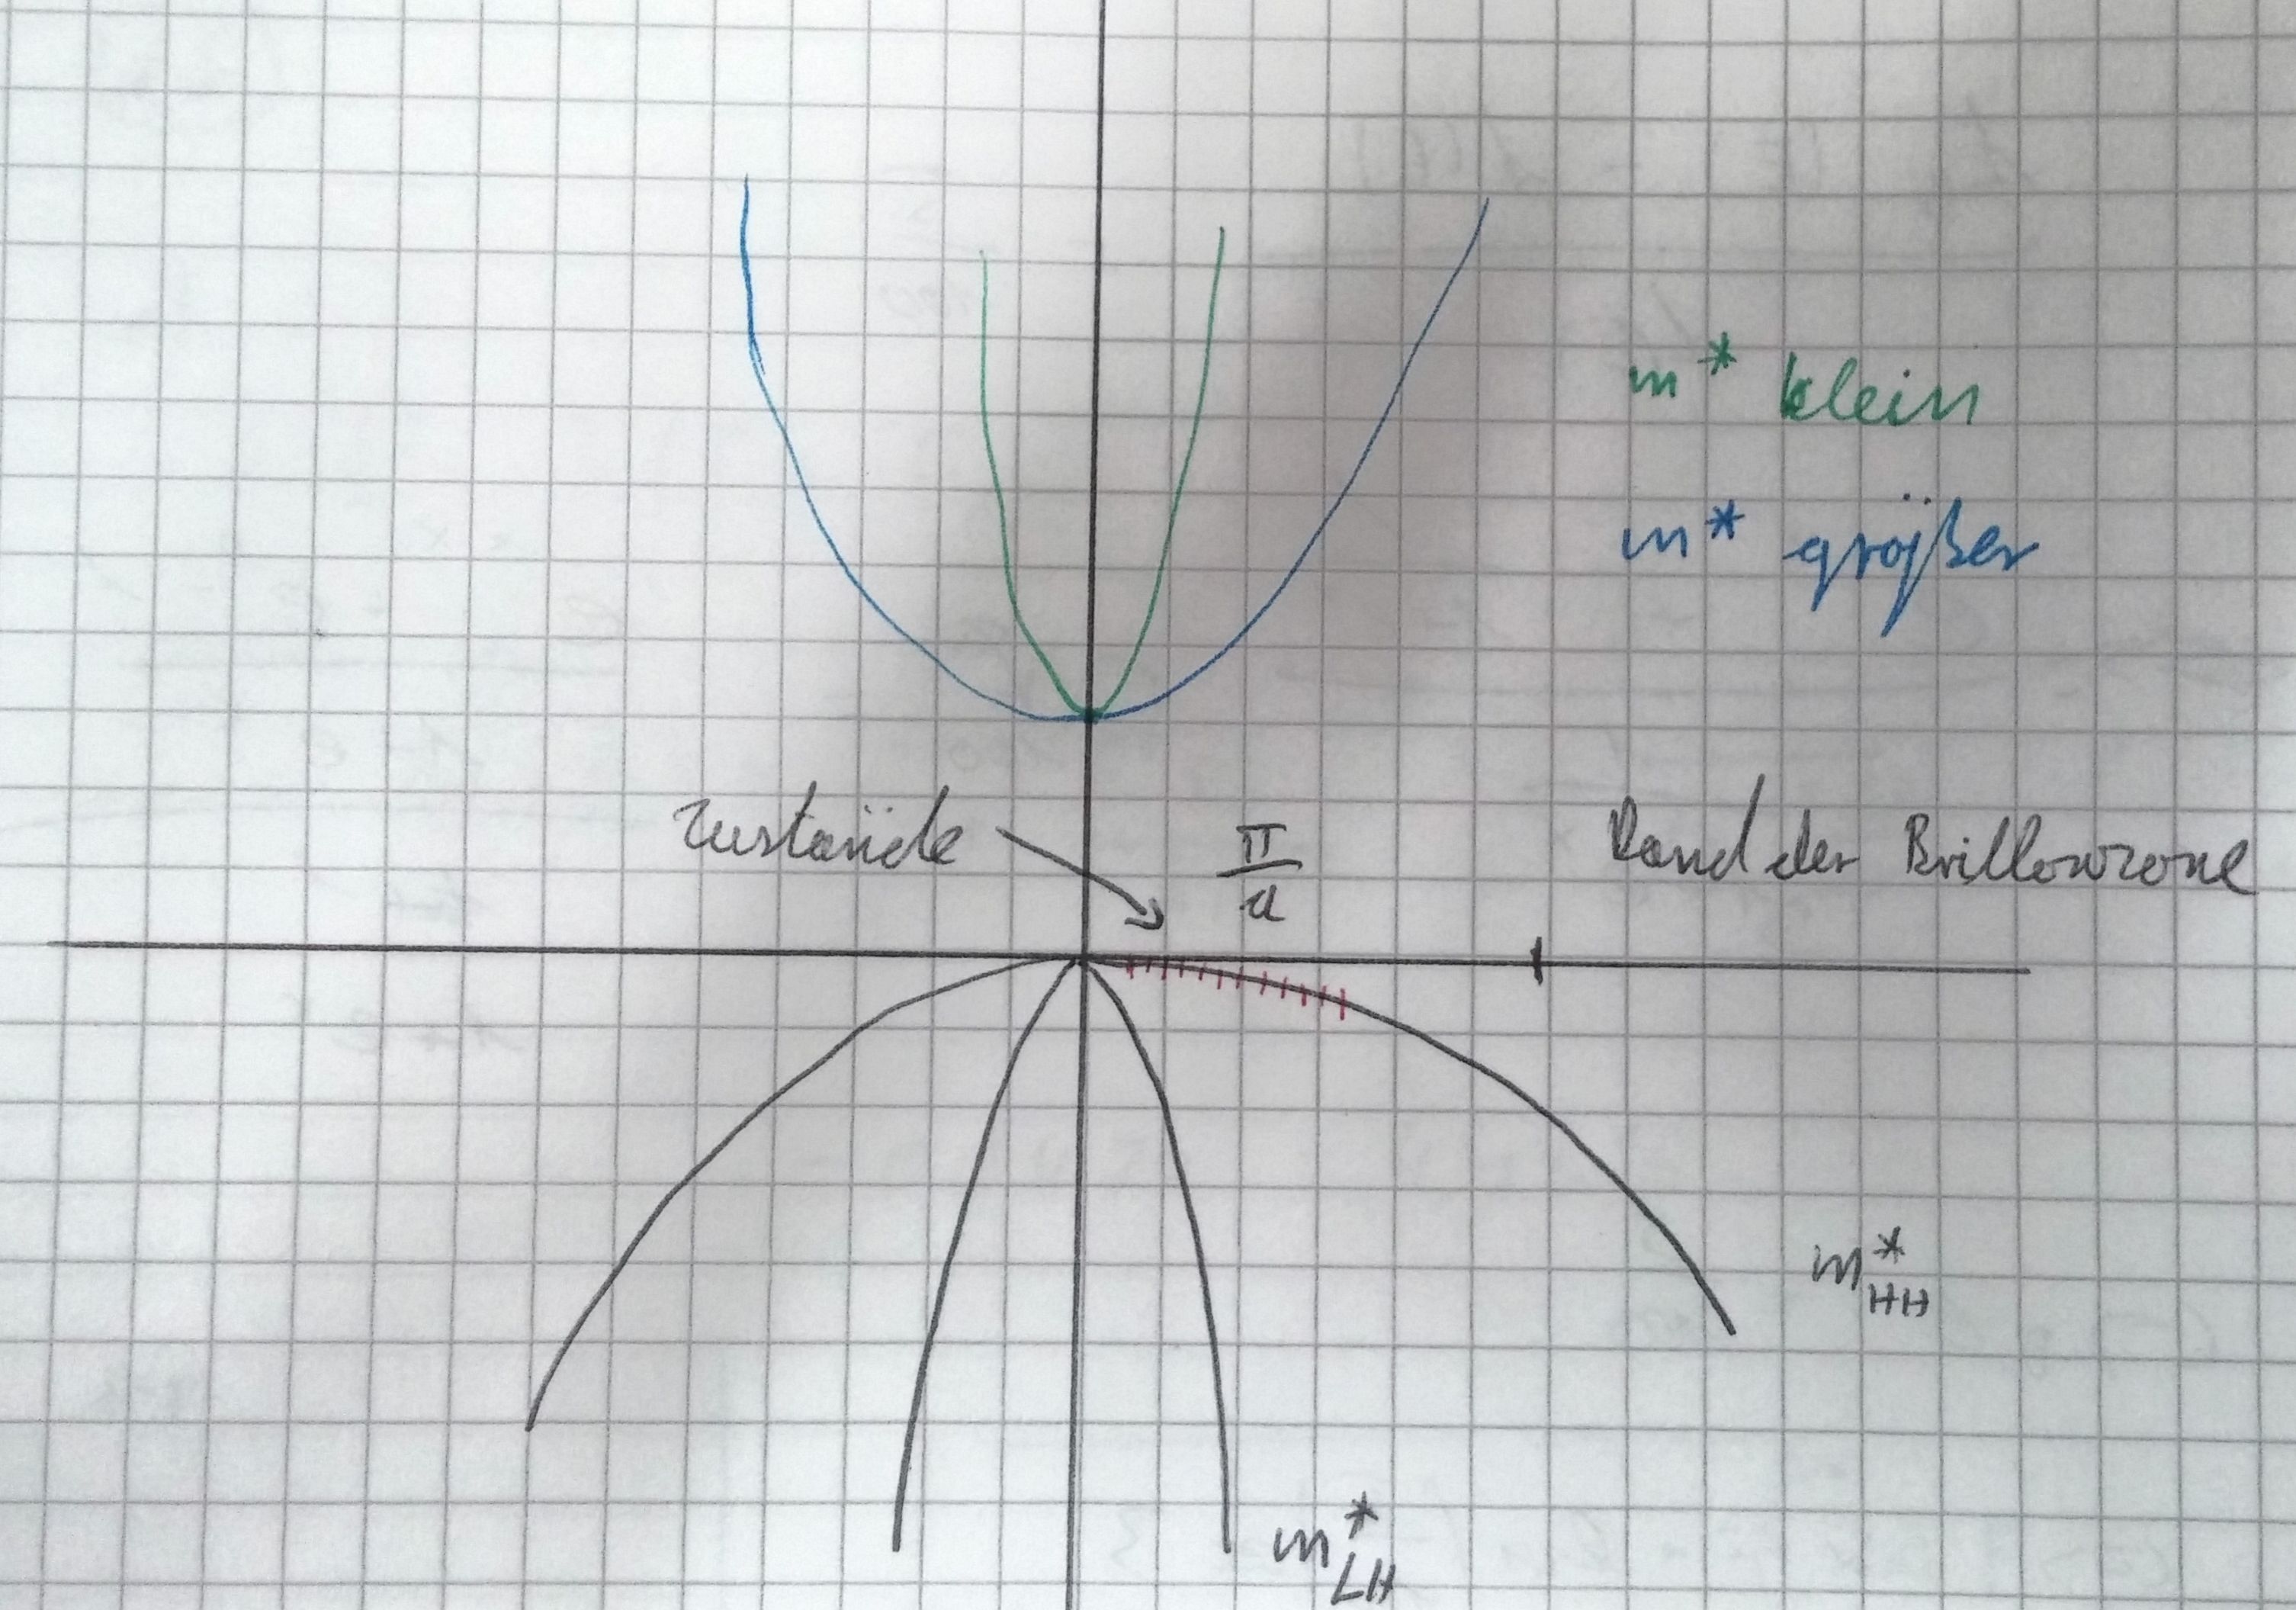 m* klein
m* größer
Zustände
π/a
Rand der Brillouinzone
m*HH
m*LH